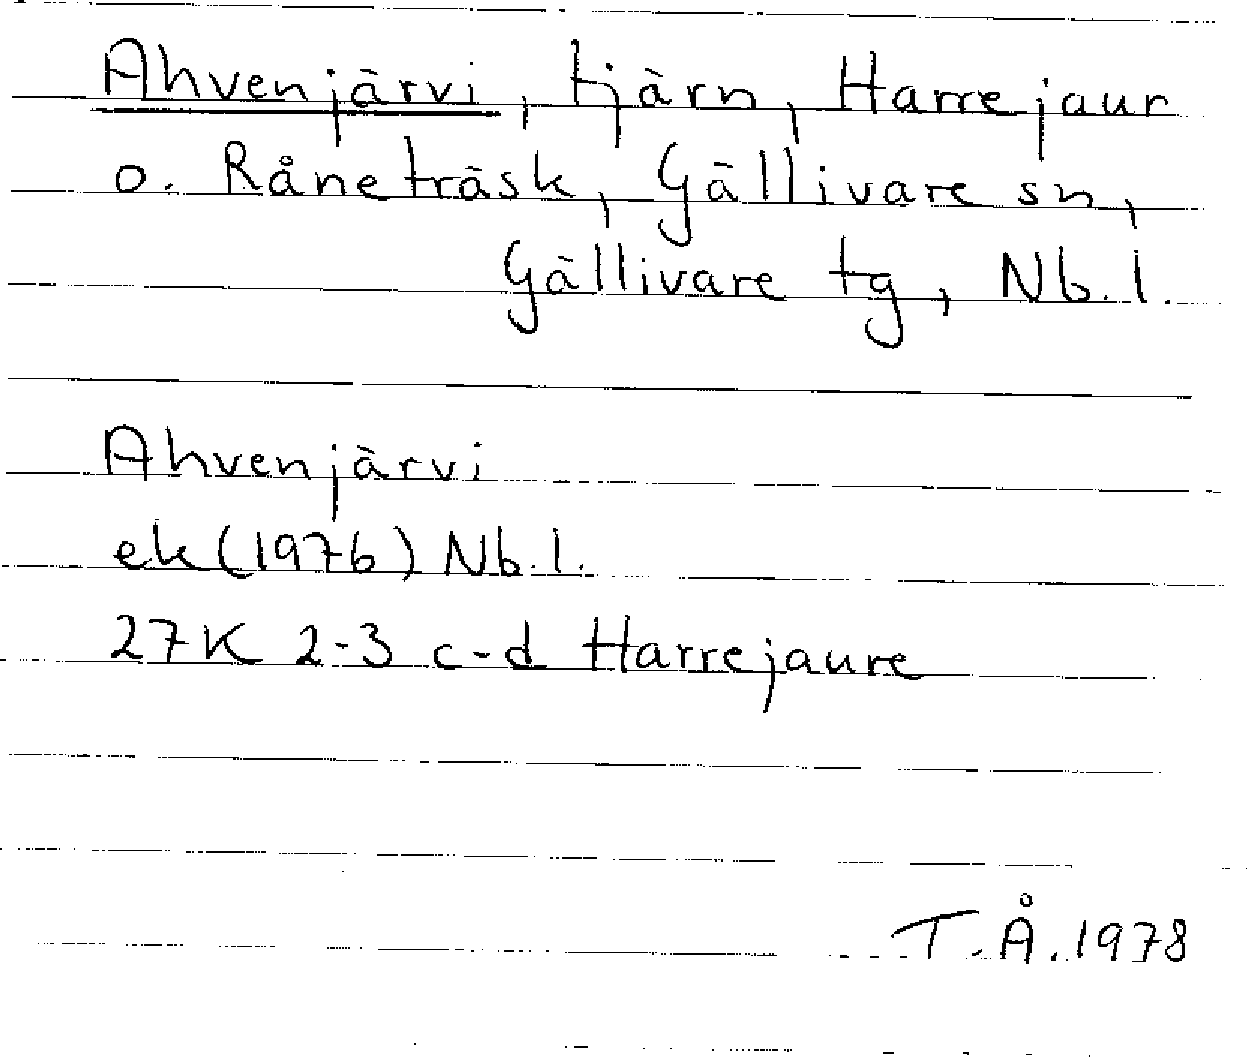 Ahvenjärvi, tjärn, Harrejaur
o. Råneträsk, Gällivare sn,
Gällivare tg, Nb. l.
Ahvenjärvi
ek (1976) Nb. l.
27K 2-3 c-d Harrejaure
T. Å. 1978